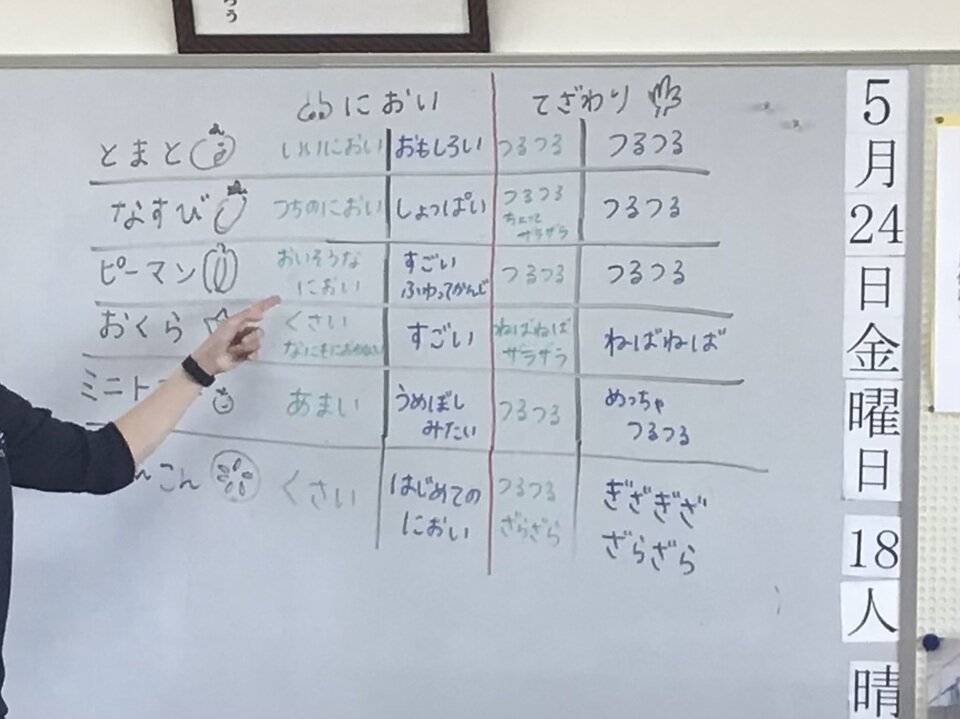 う
におい てざわり
とまと いいにおい おもしろい つるつる つるつる
なすび つちのにおい しょっぱい つるつる ちょっと ザラザラ つるつる
ピーマン おいそうな におい すごい ふわってかんじ つるつる つるつる
おくら くさい すごい ねばねば ザラザラ ねばねば
ミニト あまい うめぼし みたい つるつる めっちゃ つるつる
こん くさい はじめての におい つるつる ざらざら ぎざぎざ ざらざら
5
月
24
日
金
曜
日
18
人
晴